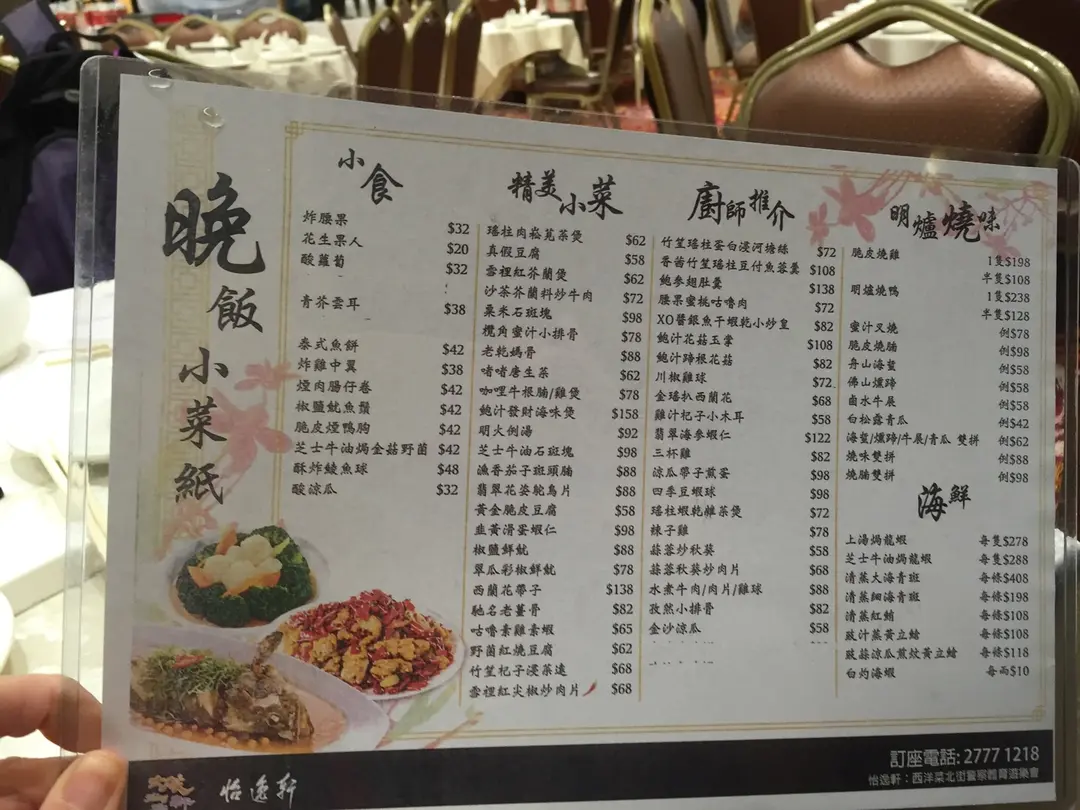 晚飯小菜紙
小食
炸腰果 $32
花生果人 $20
酸蘿蔔 $32
青芥雲耳 $38
泰式魚餅 $42
炸雞中翼 $38
煙肉腸仔卷 $42
椒鹽魷魚鬚 $42
脆皮煙鴨胸 $42
芝士牛油焗金菇野菌 $42
酥炸鯪魚球 $48
酸涼瓜 $32
精美小菜
瑤柱肉崧莧菜煲 $62
真假豆腐 $58
雪裡紅芥蘭煲 $62
沙茶芥蘭料炒牛肉 $72
粟米石斑塊 $98
欖角蜜汁小排骨 $78
老乾媽骨 $88
啫啫唐生菜 $62
咖哩牛根腩/雞煲 $78
鮑汁發財海味煲 $158
明火例湯 $92
芝士牛油石斑塊 $98
漁香茄子斑頭腩 $88
翡翠花姿鴕鳥片 $88
黃金脆皮豆腐 $58
韭黃滑蛋蝦仁 $98
椒鹽鮮魷 $88
翠瓜彩椒鮮魷 $78
西蘭花帶子 $138
馳名老薑骨 $82
咕嚕素雞素蝦 $65
野菌紅燒豆腐 $62
竹笙杞子浸菜遠 $68
雪裡紅尖椒炒肉片 $68
廚師推介
竹笙瑤柱蛋白浸河塘絲 $72
香茜竹笙瑤柱豆付魚蓉羹 $108
鮑參翅肚羹 $138
腰果蜜桃咕嚕肉 $72
XO醬銀魚干蝦乾小炒皇 $82
鮑汁花菇玉掌 $108
鮑汁蹄根花菇 $82
川椒雞球 $72
金瑤扒西蘭花 $68
雞汁杞子小木耳 $58
翡翠海參蝦仁 $122
三杯雞 $82
涼瓜帶子煎蛋 $98
四季豆蝦球 $98
瑤柱蝦乾雜菜煲 $72
辣子雞 $78
蒜蓉炒秋葵 $58
蒜蓉秋葵炒肉片 $68
水煮牛肉/肉片/雞球 $88
孜然小排骨 $82
金沙涼瓜 $58
明爐燒味
脆皮燒雞 1隻$198
半隻$108
明爐燒鴨 1隻$238
半隻$128
蜜汁叉燒 例$78
脆皮燒腩 例$98
舟山海蜇 例$58
佛山燻蹄 例$58
鹵水牛展 例$58
白松露青瓜 例$42
海蜇/燻蹄/牛展/青瓜 雙拼 例$62
燒味雙拼 例$88
燒腩雙拼 例$98
海鮮
上湯焗龍蝦 每隻$278
芝士牛油焗龍蝦 每隻$288
清蒸大海青斑 每條$408
清蒸細海青斑 每條$198
清蒸紅鮋 每條$108
豉汁蒸黃立鯧 每條$108
豉蒜涼瓜煎炆黃立鯧 每條$118
白灼海蝦 每兩$10
訂座電話: 2777 1218
怡逸軒：西洋菜北街警察體育遊樂會
怡逸軒